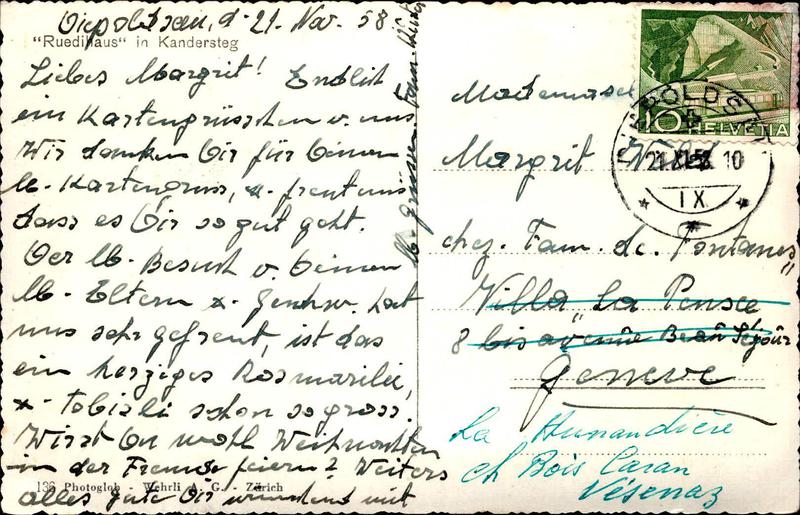 Diepoldsau, d. 21. Nov. 58.
"Ruedihaus" in Kandersteg
Liebes Margrit! Endlich
ein Kartengrüsschen v. uns
Wir danken Dir für Deinen
lb. Kartengruss, x. freut uns
dass es Dir so gut geht.
Der lb. Besuch v. Deinen
lb. Eltern x. Geschw. hat
uns sehr gefreut, ist das
ein herziges Rosmarieli,
x. Tobisli schon so gross.
Wirst Du wohl Weihnachten
in der Fremde feiern? Weiters
136 Photoglob - Wehrli A. G. - Zürich
alles gute Dir wünschend mit
lb. Grüssen Fam.
10 HELVETIA
DIEPOLDSAU
21.XI.58. 10
IX
Mademoiselle
Margrit
chez. Fam. de. Fontanes
Villa "La Pensée"
8 bis avenue Beau Séjour
Genève
La Hunandière
ch Bois Caran
Vésenaz